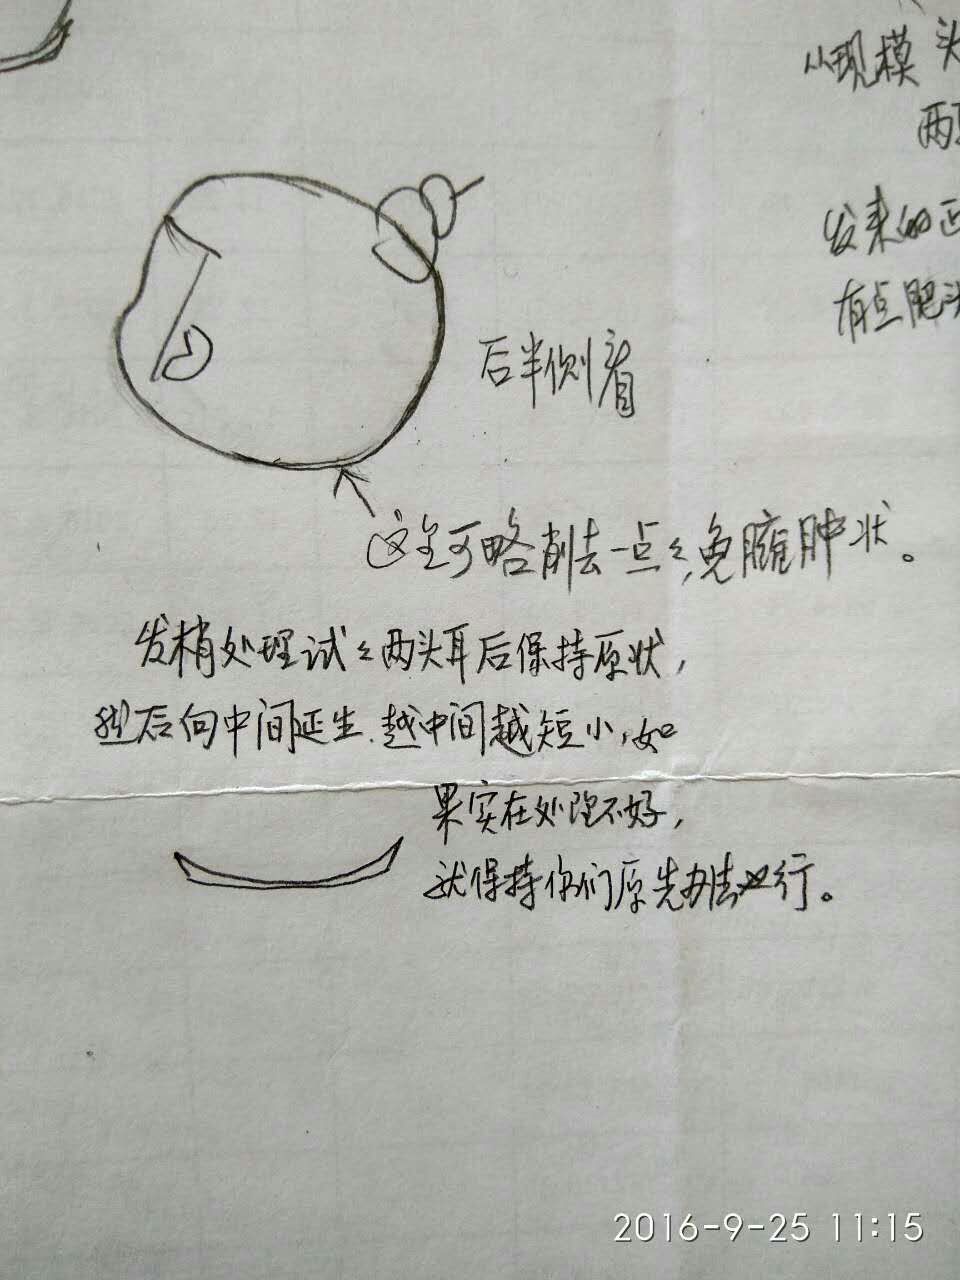 从现模 头
两耳
发来的正
有点肥头
后半侧看
这里可略削去一点点,免臃肿状。
发梢处理试试两头耳后保持原状,
然后向中间延生.越中间越短小,如
果实在处理不好,
就保持你们原先办法也行。
2016-9-25 11:15